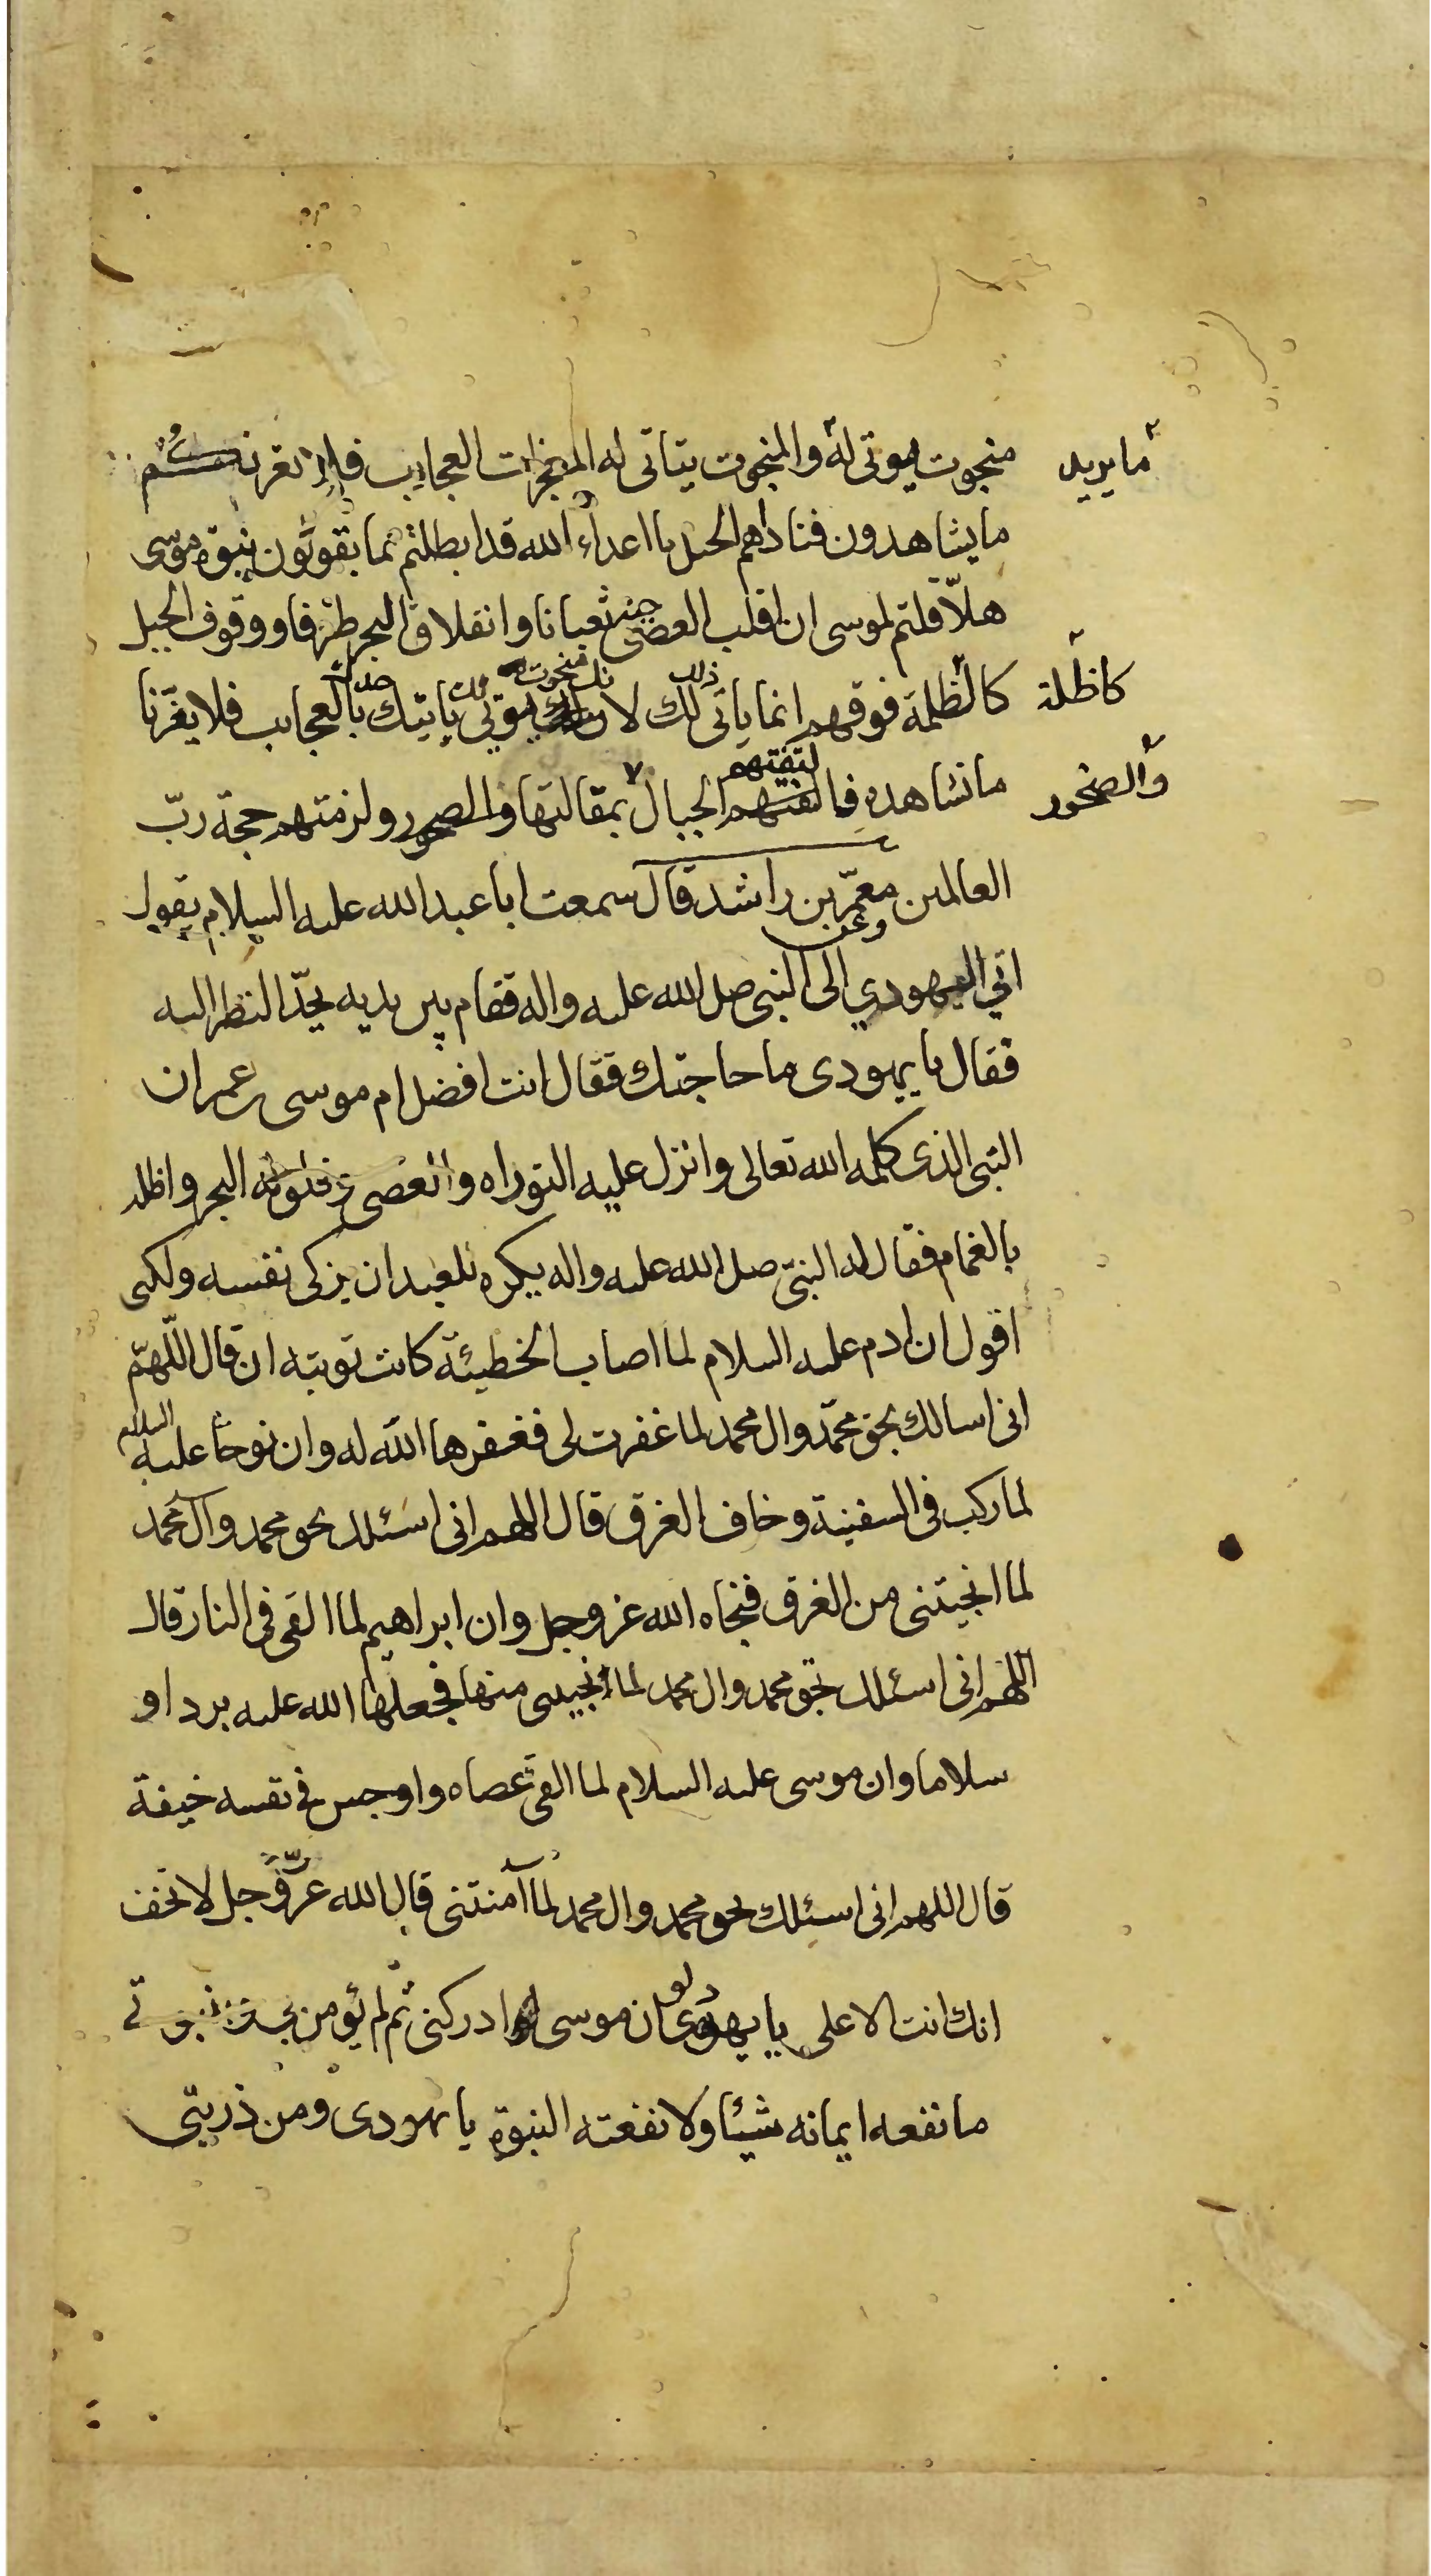 ما يريد
منجوت يوتى له والمنجوت يتاتى له العجايب فلا يغرنكم
ما يشاهدون فناداهم الجبل يا اعداء الله قد ابطلتم بما تقولون نبوة موسى
هلا قلتم لموسى ان قلب العصى حية ثعبانا وانفلاق البحر طرفا ووقوف الجبل
كاظلة
كالظلمة فوقهم انما ياتى لك ذلك لان يوتي ياتيك بالعجايب فلا يغرنا
والصخور
ما نشاهده فالقتهم لتفتهم الجبال بمقالتها والصخور ولزمتهم حجة ربّ
العالمين وعن معمّر بن راشد قال سمعت ابا عبدالله عليه السلام يقول
اتي اليهودي الى النبى صل الله عليه واله فقام بين يديه يحدّ النظر اليه
فقال يا يهودى ما حاجتك فقال انت افضل ام موسى بن عمران
النبى الذى كلمه الله تعالى وانزل عليه التوراه والعصى وفلق له البحر واظله
بالغمام فقال له النبىّ صل الله عليه واله يكره للعبد ان يزكى نفسه ولكنى
اقول ان ادم عليه السلام لما اصاب الخطيئة كانت توبته ان قال اللّهمّ
انى اسالك بحق محمّد وال محمد لما غفرت لى فغفرها الله له وان نوحا عليه السلام
لما ركب فى السفينة وخاف الغرق قال اللهم انى اسئلك بحق محمد وآل محمد
لما انجيتنى من الغرق فنجاه الله عز وجل وان ابراهيم لما القى فى النار قال
اللهم انى اسئلك بحق محمد وال محمد لما انجيتنى منها فجعلها الله عليه بردا و
سلاما وان موسى عليه السلام لما القى عصاه واوجس فى نفسه خيفة
قال اللهم انى اسئلك بحق محمد وال محمد لما آمنتنى قال الله عزّ وجل لا تخف
انك انت الاعلى يا يهودى لو ان موسى ادركنى ثم لم يؤمن بى وبنبوتى
ما نفعه ايمانه شيئا ولا نفعته النبوة يا يهودى ومن ذريتى